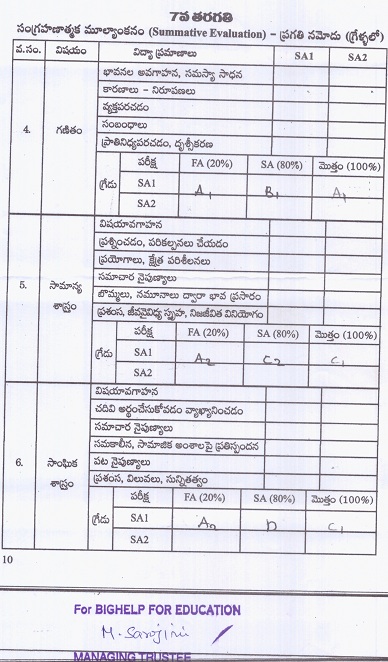 7వ తరగతి
సంగ్రహణాత్మక మూల్యాంకనం (Summative Evaluation) – ప్రగతి నమోదు (గ్రేళ్ళలో)
వ.సం. విషయం విద్యా ప్రమాణాలు SA1 SA2
4. గణితం
భావనల అవగాహన, సమస్యా సాధన
కారణాలు – నిరూపణలు
వ్యక్తపరచడం
సంబంధాలు
ప్రాతినిధ్యపరచడం, దృశ్యీకరణ
గ్రేడు పరీక్ష FA (20%) SA (80%) మొత్తం (100%)
SA1 A1 B1 A1
SA2
5. సామాన్య శాస్త్రం
విషయావగాహన
ప్రశ్నించడం, పరికల్పనలు చేయడం
ప్రయోగాలు, క్షేత్ర పరిశీలనలు
సమాచార నైపుణ్యాలు
బొమ్మలు, నమూనాలు ద్వారా భావ ప్రసారం
ప్రశంస, జీవవైవిధ్య స్పృహ, నిజజీవిత వినియోగం
గ్రేడు పరీక్ష FA (20%) SA (80%) మొత్తం (100%)
SA1 A2 C2 C1
SA2
6. సాంఘిక శాస్త్రం
విషయావగాహన
చదివి అర్థంచేసుకోవడం వ్యాఖ్యానించడం
సమాచార నైపుణ్యాలు
సమకాలీన, సామాజిక అంశాలపై ప్రతిస్పందన
పట నైపుణ్యాలు
ప్రశంస, విలువలు, సున్నితత్వం
గ్రేడు పరీక్ష FA (20%) SA (80%) మొత్తం (100%)
SA1 A2 D C1
SA2
10
For BIGHELP FOR EDUCATION
M. Sarojini
MANAGING TRUSTEE